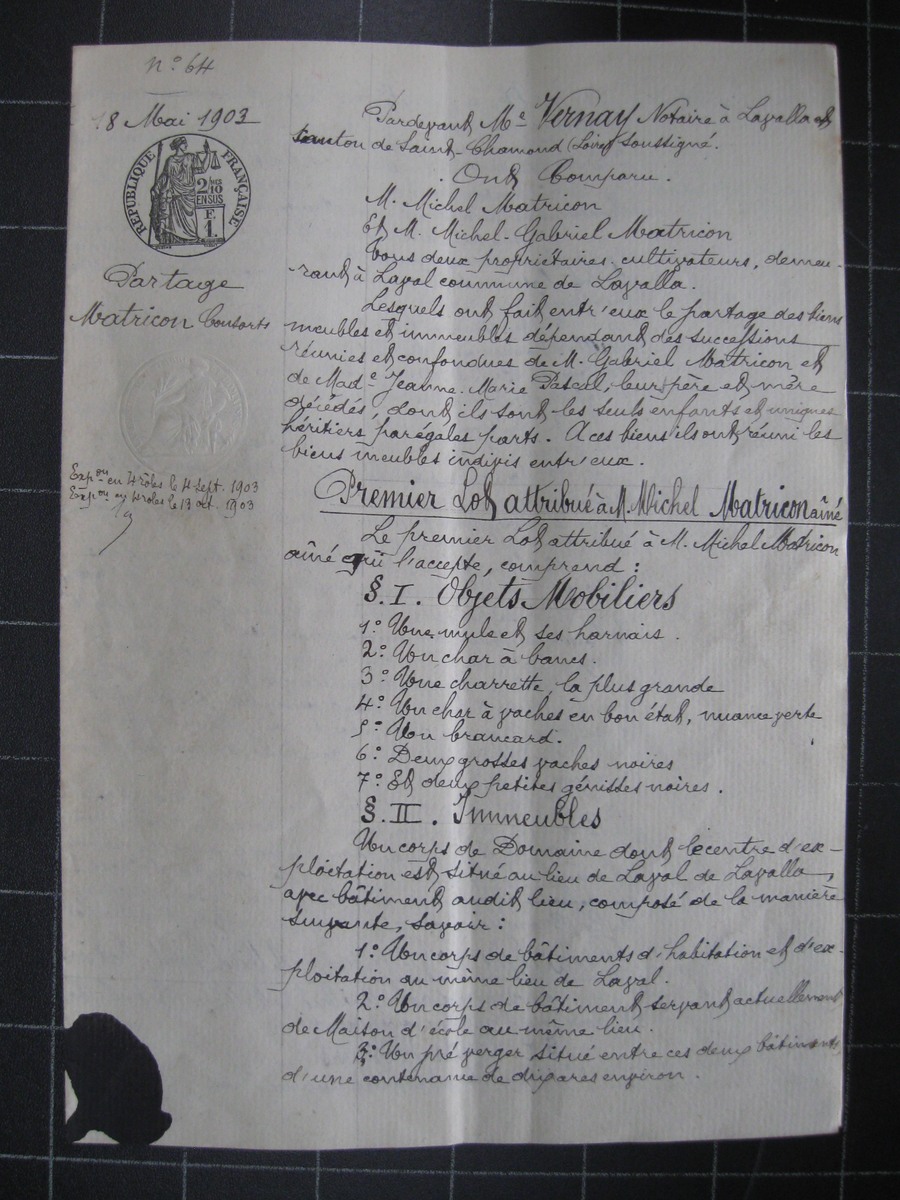 N° 64
18 Mai 1903
RÉPUBLIQUE FRANÇAISE
2/10
EN SUS
F
1.
Partage
Matricon Consorts
Expon en 4 rôles le 4 sept. 1903
Expon en 4 roles le 13 oct. 1903
Pardevant Me Vernay Notaire à Lavalla et
canton de Saint-Chamond (Loire) soussigné.
Ont Comparu.
M. Michel Matricon
Et M. Michel-Gabriel Matricon
Tous deux propriétaires cultivateurs, demeu-
rant à Laval commune de Lavalla.
Lesquels ont fait entr'eux le partage des biens
meubles et immeubles dépendant des successions
réunies et confondues de M. Gabriel Matricon et
de Made Jeanne-Marie Pascal, leur père et mère
décédés, dont ils sont les seuls enfants et uniques
héritiers par égales parts. A ces biens ils ont réuni les
biens meubles indivis entr'eux.
Premier Lot attribué à M. Michel Matricon aîné
Le premier Lot attribué à M. Michel Matricon
aîné qui l'accepte, comprend :
§. I. Objets Mobiliers
1° Une mule et ses harnais.
2° Un char à bancs.
3° Une charrette, la plus grande
4° Un char à vaches en bon état, nuance verte
5° Un brancard.
6° Deux grosses vaches noires
7° Et deux petites génisses noires.
§. II. Immeubles
Un corps de Domaine dont le centre d'ex-
ploitation est situé au lieu de Laval de Lavalla,
avec bâtiment audit lieu, composé de la manière
suivante, savoir :
1° Un corps de bâtiments d'habitation et d'ex-
ploitation au même lieu de Laval.
2° Un corps de bâtiment servant actuellement
de Maison d'école au même lieu.
3° Un pré verger situé entre ces deux bâtiments
d'une contenance de dix ares environ.